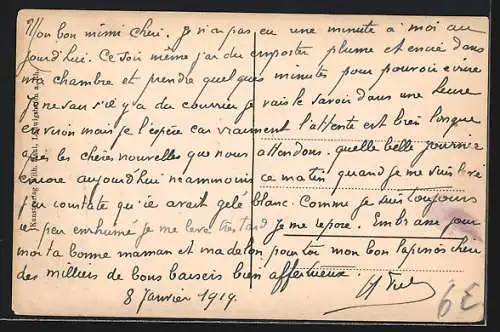 Mon bon mimi cheri. Je n'ai pas eu une minute a moi au
jourd'hui. Ce soir même j'ai du emporter plume et encre dans
ma chambre et prendre quelques minutes pour pouvoir ecrire
Je ne sais s'il y a du courrier je vais le savoir dans une heure
environ mais je l'espère car vraiment l'attente est bien longue
après les chères nouvelles que nous attendons. quelle belle journée
encore aujourd'hui neammoins ce matin quand je me suis levé
j'ai constaté qu'il avait gelé blanc. Comme je suis toujours
un peu enrhumé je me leve très tard je me repose. Embrasse pour
moi ta bonne maman et madelon pour toi mon bon lapinos cheri
des milliers de bons baisers bien affectueux.
8 Janvier 1919.
6E
Kunstverlag
Ludwigshafen a. Rh.